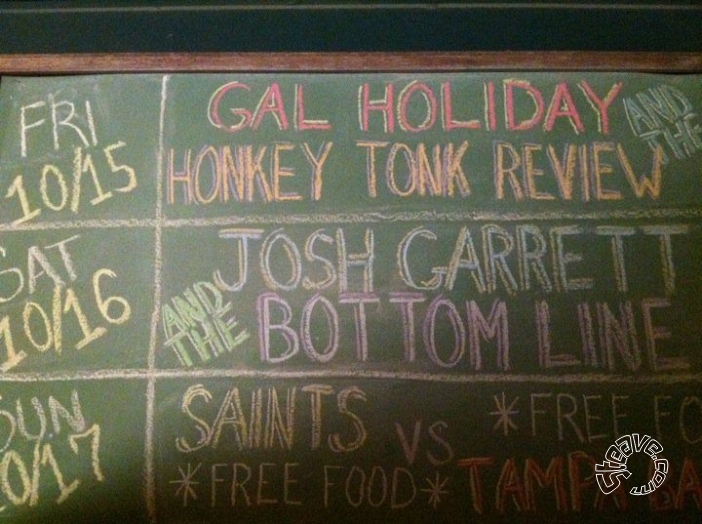 FRI
10/15
GAL HOLIDAY AND THE
HONKEY TONK REVIEW
SAT
10/16
JOSH GARRETT
AND THE BOTTOM LINE
SUN
10/17
SAINTS VS *FREE FO
*FREE FOOD* TAMPA BA
Steave.com